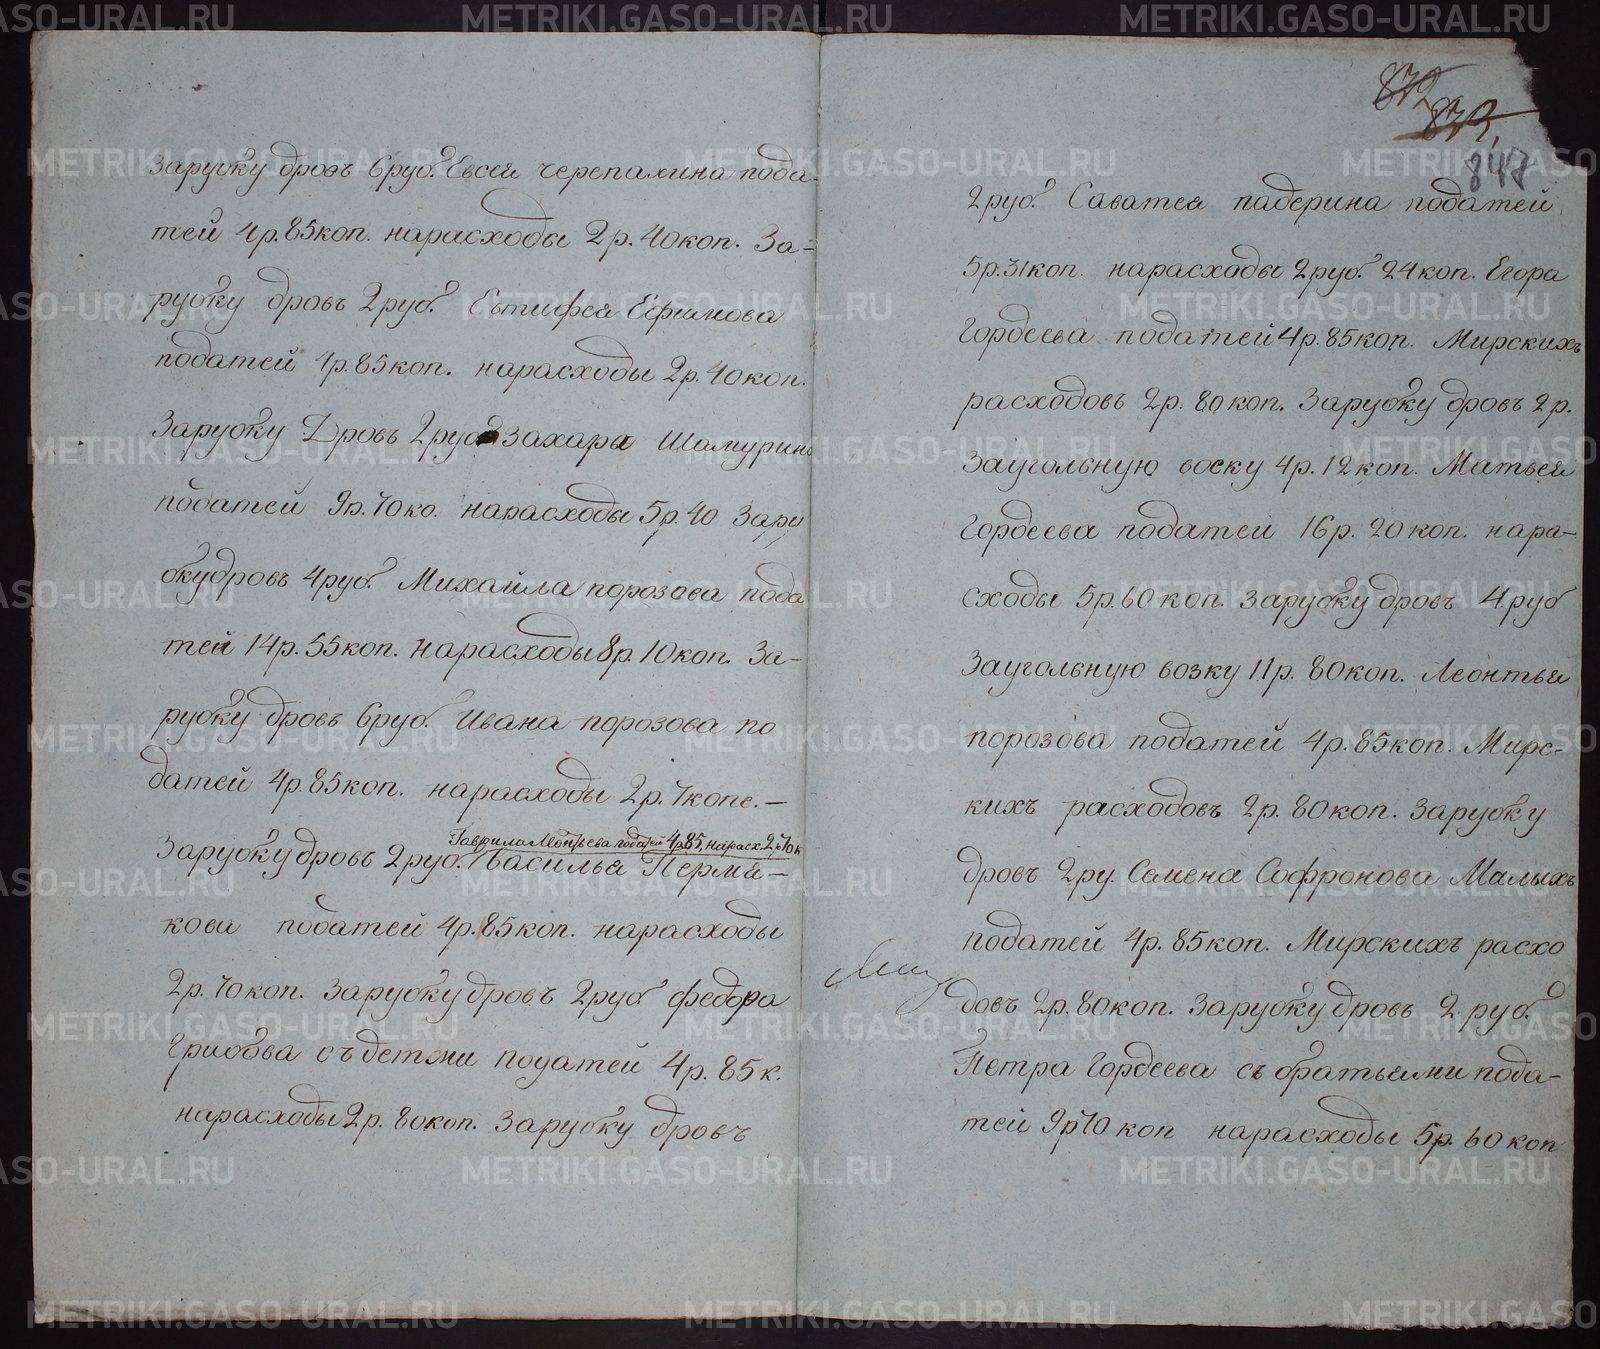 зарубку дровъ 6руб. Евсея черепахина пода-
тей 4р.85коп. нарасходы 2р.40коп. За-
рубку дровъ 2руб. Евтифея Ефимова
податей 4р.85коп. нарасходы 2р.40коп.
Зарубку Дровъ 2руб захара Шамурина
податей 9р.70ко. нарасходы 5р.40 Зару
бкудровъ 4руб. Михайла порозова пода
тей 14р.55коп. нарасходы 8р.10коп. За-
рубку дровъ 6руб. Ивана порозова по
датей 4р.85коп. нарасходы 2р.7копе.-
Гаврила Леонтьева податей 4р85, нарасх.2р70к
Зарубку дровъ 2руб. Василья Пермя-
кова податей 4р.85коп. нарасходы
2р.70коп. Зарубку дровъ 2руб федора
грибова съ детми податей 4р.85к.
нарасходы 2р.80коп. Зарубку дровъ
872
873
847
2руб. Саватея падерина податей
5р.31коп. нарасходы 2руб. 24коп. Егора
Гордеева податей 4р.85коп. Мирскихъ
расходовъ 2р.80коп. Зарубку дровъ 2р.
Заугольную воску 4р.12коп. Матвея
Гордеева податей 16р.20коп. нара-
сходы 5р.60коп. Зарубку дровъ 4.руб
Заугольную возку 11р.80коп. Леонтья
порозова податей 4р.85коп. Мирс-
кихъ расходовъ 2р.80коп. Зарубку
дровъ 2ру. Семена Софронова Малыхъ
податей 4р.85коп. Мирскихъ расхо
довъ 2р.80коп. Зарубку дровъ 2 руб.
Петра Гордеева съ братьями пода-
тей 9р70 коп нарасходы 5р.60 коп
METRIKI.GASO-URAL.RU